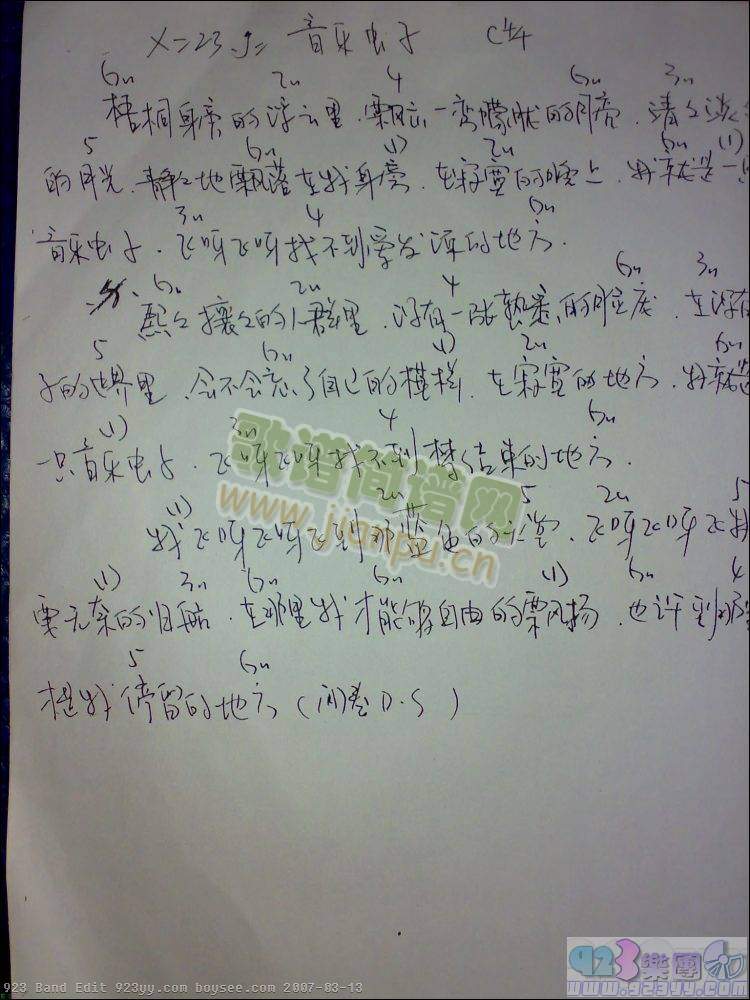 X=23 J= 音乐虫子 C 4/4
6m 2m 4 6m 3m
梧桐身旁的浮云里.飘出一弯朦胧的月亮.清々淡々
5 6m (1) 2m 6m (1)
的月光.静々地飘落在我身旁.在寂寞的晚上.我就是一只
3m 4 6m
音乐虫子.飞呀飞呀找不到爱发源的地方.
6m 2m 4 6m 3m
熙々攘々的人群里.没有一张熟悉的脸庞.在没有
5 6m (1) 2m 6m
子的世界里.会不会忘了自己的模样.在寂寞的地方.我就是
(1) 3m 4 6m
一只音乐虫子.飞呀飞呀找不到梦结束的地方.
(1) 2m 5 2m 5
我飞呀飞呀飞到那蓝色的天空.飞呀飞呀飞我
(1) 3m 6m 6m (1) 6m 4
要无奈的归航.在那里我才能够自由的飘扬.也许到那里
5 6m
才是我停留的地方(间奏D.S)
歌谱简谱网
www.jianpu.cn
923樂團
www.923yy.com
923 Band Edit 923yy.com boysee.com 2007-03-13